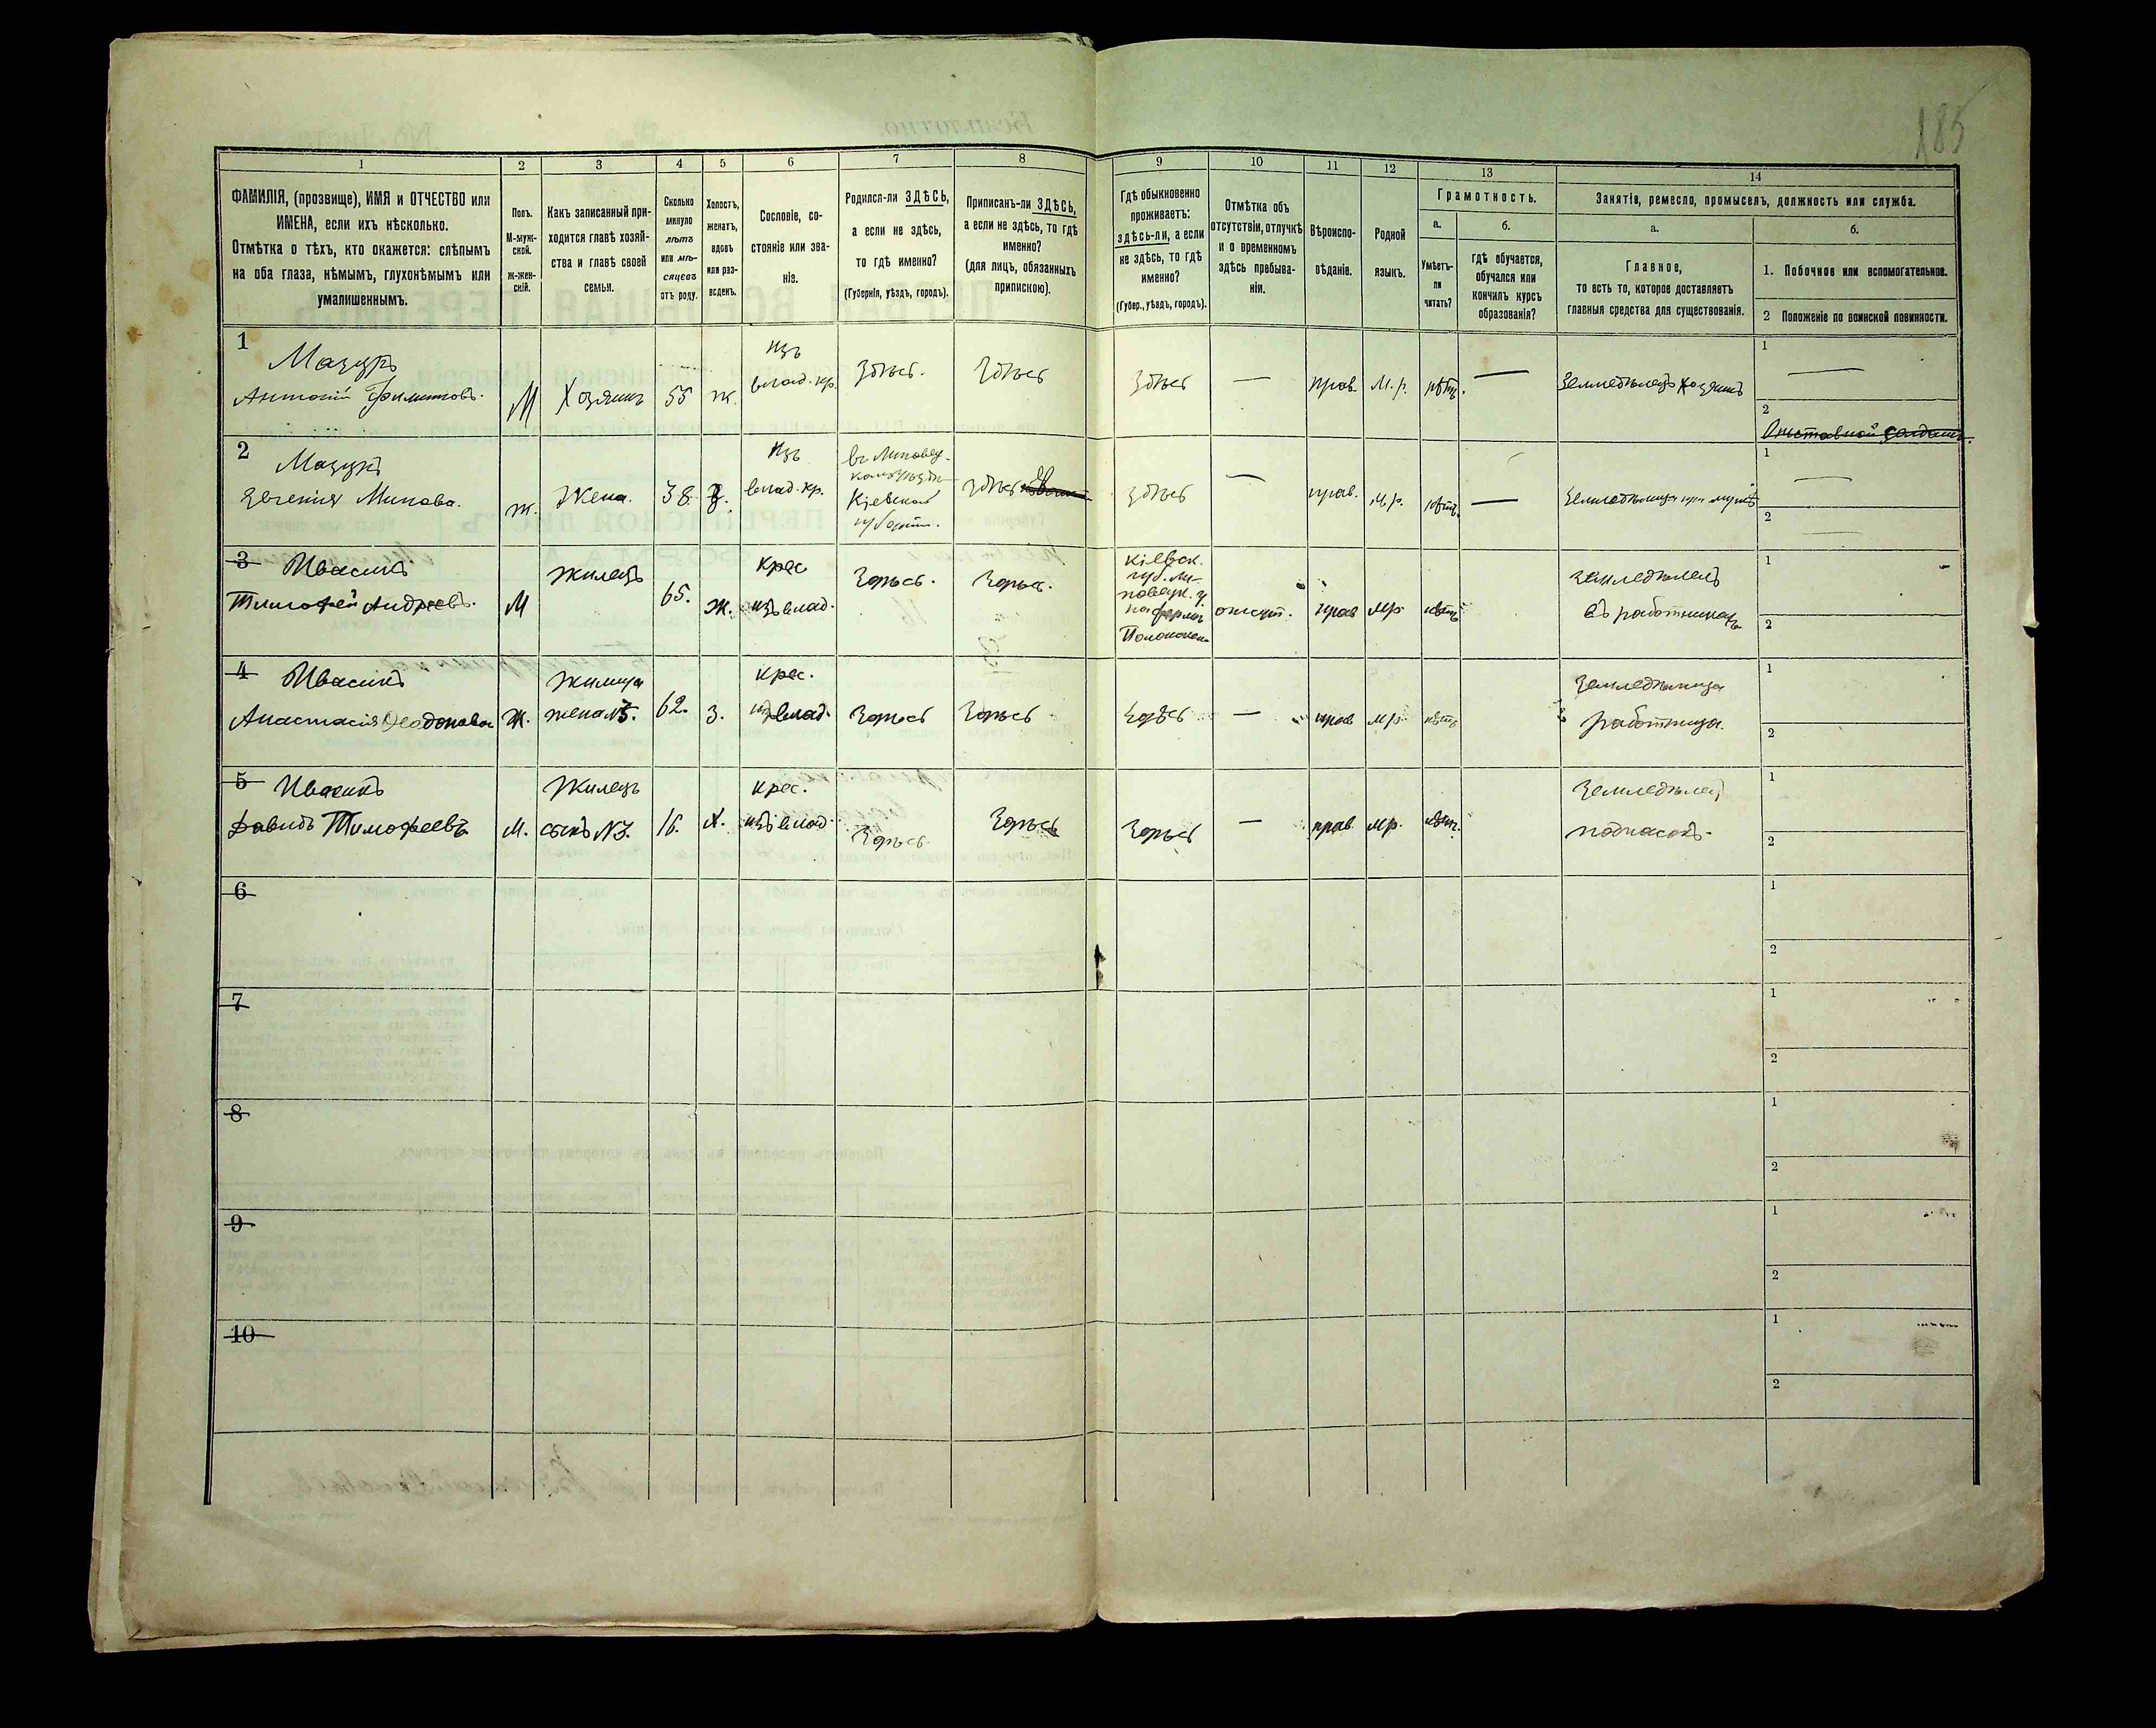 185
1
2
3
4
5
6
7
8
9
10
11
12
13
14
ФАМИЛІЯ, (прозвище), ИМЯ и ОТЧЕСТВО или
ИМЕНА, если ихъ нѣсколько.
Отмѣтка о тѣхъ, кто окажется: слѣпымъ
на оба глаза, нѣмымъ, глухонѣмымъ или
умалишеннымъ.
Полъ.
М-муж-
ской.
ж-жен-
скій.
Какъ записанный при-
ходится главѣ хозяй-
ства и главѣ своей
семьи.
Сколько
минуло
лѣтъ
или мѣ-
сяцевъ
отъ роду.
Холостъ,
женатъ,
вдовъ
или раз-
веденъ.
Сословіе, со-
стояніе или зва-
ніе.
Родился-ли ЗДѢСЬ,
а если не здѣсь,
то гдѣ именно?
(Губернія, уѣздъ, городъ).
Приписанъ-ли ЗДѢСЬ,
а если не здѣсь, то гдѣ
именно?
(для лицъ, обязанныхъ
припискою).
Гдѣ обыкновенно
проживаетъ:
здѣсь-ли, а если
не здѣсь, то гдѣ
именно?
(Губер., уѣздъ, городъ).
Отмѣтка объ
отсутствіи, отлучкѣ
и о временномъ
здѣсь пребыва-
ніи.
Вѣроиспо-
вѣданіе.
Родной
языкъ.
Грамотность.
а.
Умѣетъ-
ли
читать?
б.
гдѣ обучается,
обучался или
кончилъ курсъ
образованія?
Занятія, ремесло, промыселъ, должность или служба.
а.
Главное,
то есть то, которое доставляетъ
главныя средства для существованія.
б.
1. Побочное или вспомогательное.
2 Положеніе по воинской повинности.
1
Мазуръ
Антоній
М
Хозяинъ
55
ж.
изъ
влад. кр.
Здѣсь.
Здѣсь
Здѣсь
—
прав.
М. р.
нѣтъ.
—
Земледѣлецъ хозяинъ
1
—
2
Отставной солдатъ.
2
Мазуръ
Евгенія Минова.
ж.
Жена.
38.
З.
изъ
влад. кр.
въ Липовец-
комъ уѣздѣ
Кіевской
губерніи.
Здѣсь
Здѣсь
—
прав.
м. р.
нѣтъ.
—
Земледѣлица при мужѣ
1
—
2
—
3
Ивасикъ
Тимофей Андреевъ.
М
жилецъ
65.
Ж.
крес
изъ влад.
Здѣсь.
Здѣсь.
Кіевск.
губ. Ли-
повецк. у
на фермѣ
отсут.
прав
мр.
нѣтъ
земледѣлецъ
въ работникахъ
1
2
4
Ивасикъ
Анастасія
Ж.
жилица
жена №3.
62.
З.
крес.
изъ влад.
Здѣсь
Здѣсь
Здѣсь
—
прав
мр.
нѣтъ
земледѣлица
работница.
1
2
5
Ивасикъ
Давидъ Тимофеевъ
М.
Жилецъ
сынъ №3.
16.
Х.
крес.
изъ влад.
Здѣсь.
Здѣсь
Здѣсь
—
прав.
мр.
нѣтъ.
Земледѣлец
подпасокъ.
1
2
6
1
2
7
1
2
8
1
2
9
1
2
10
1
2